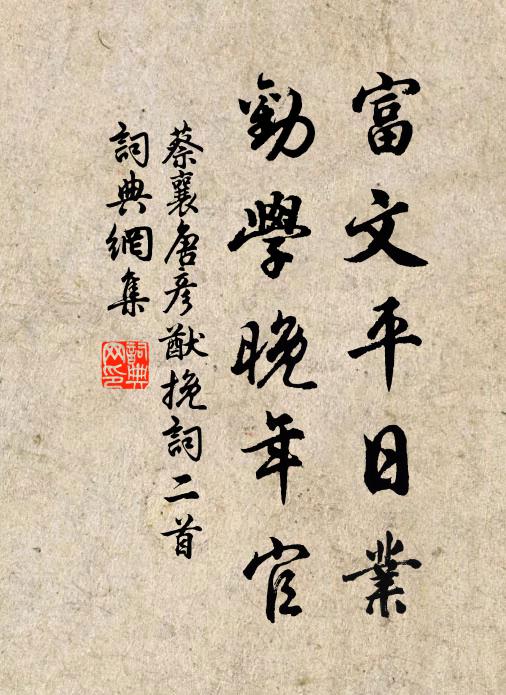 富文平日業
勸學晚年官
蔡襄唐彥猷挽詞二首
詞典網集
詞典網印